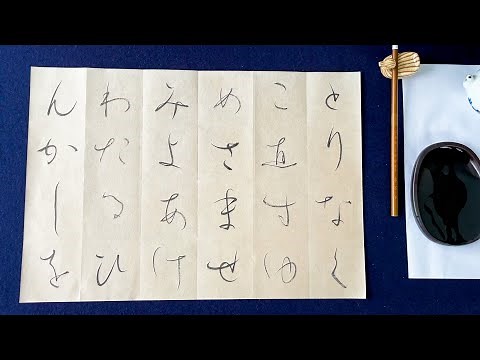 とりなく
こゑすゆ
めさませ
みよあけ
わたるひ
んかしを